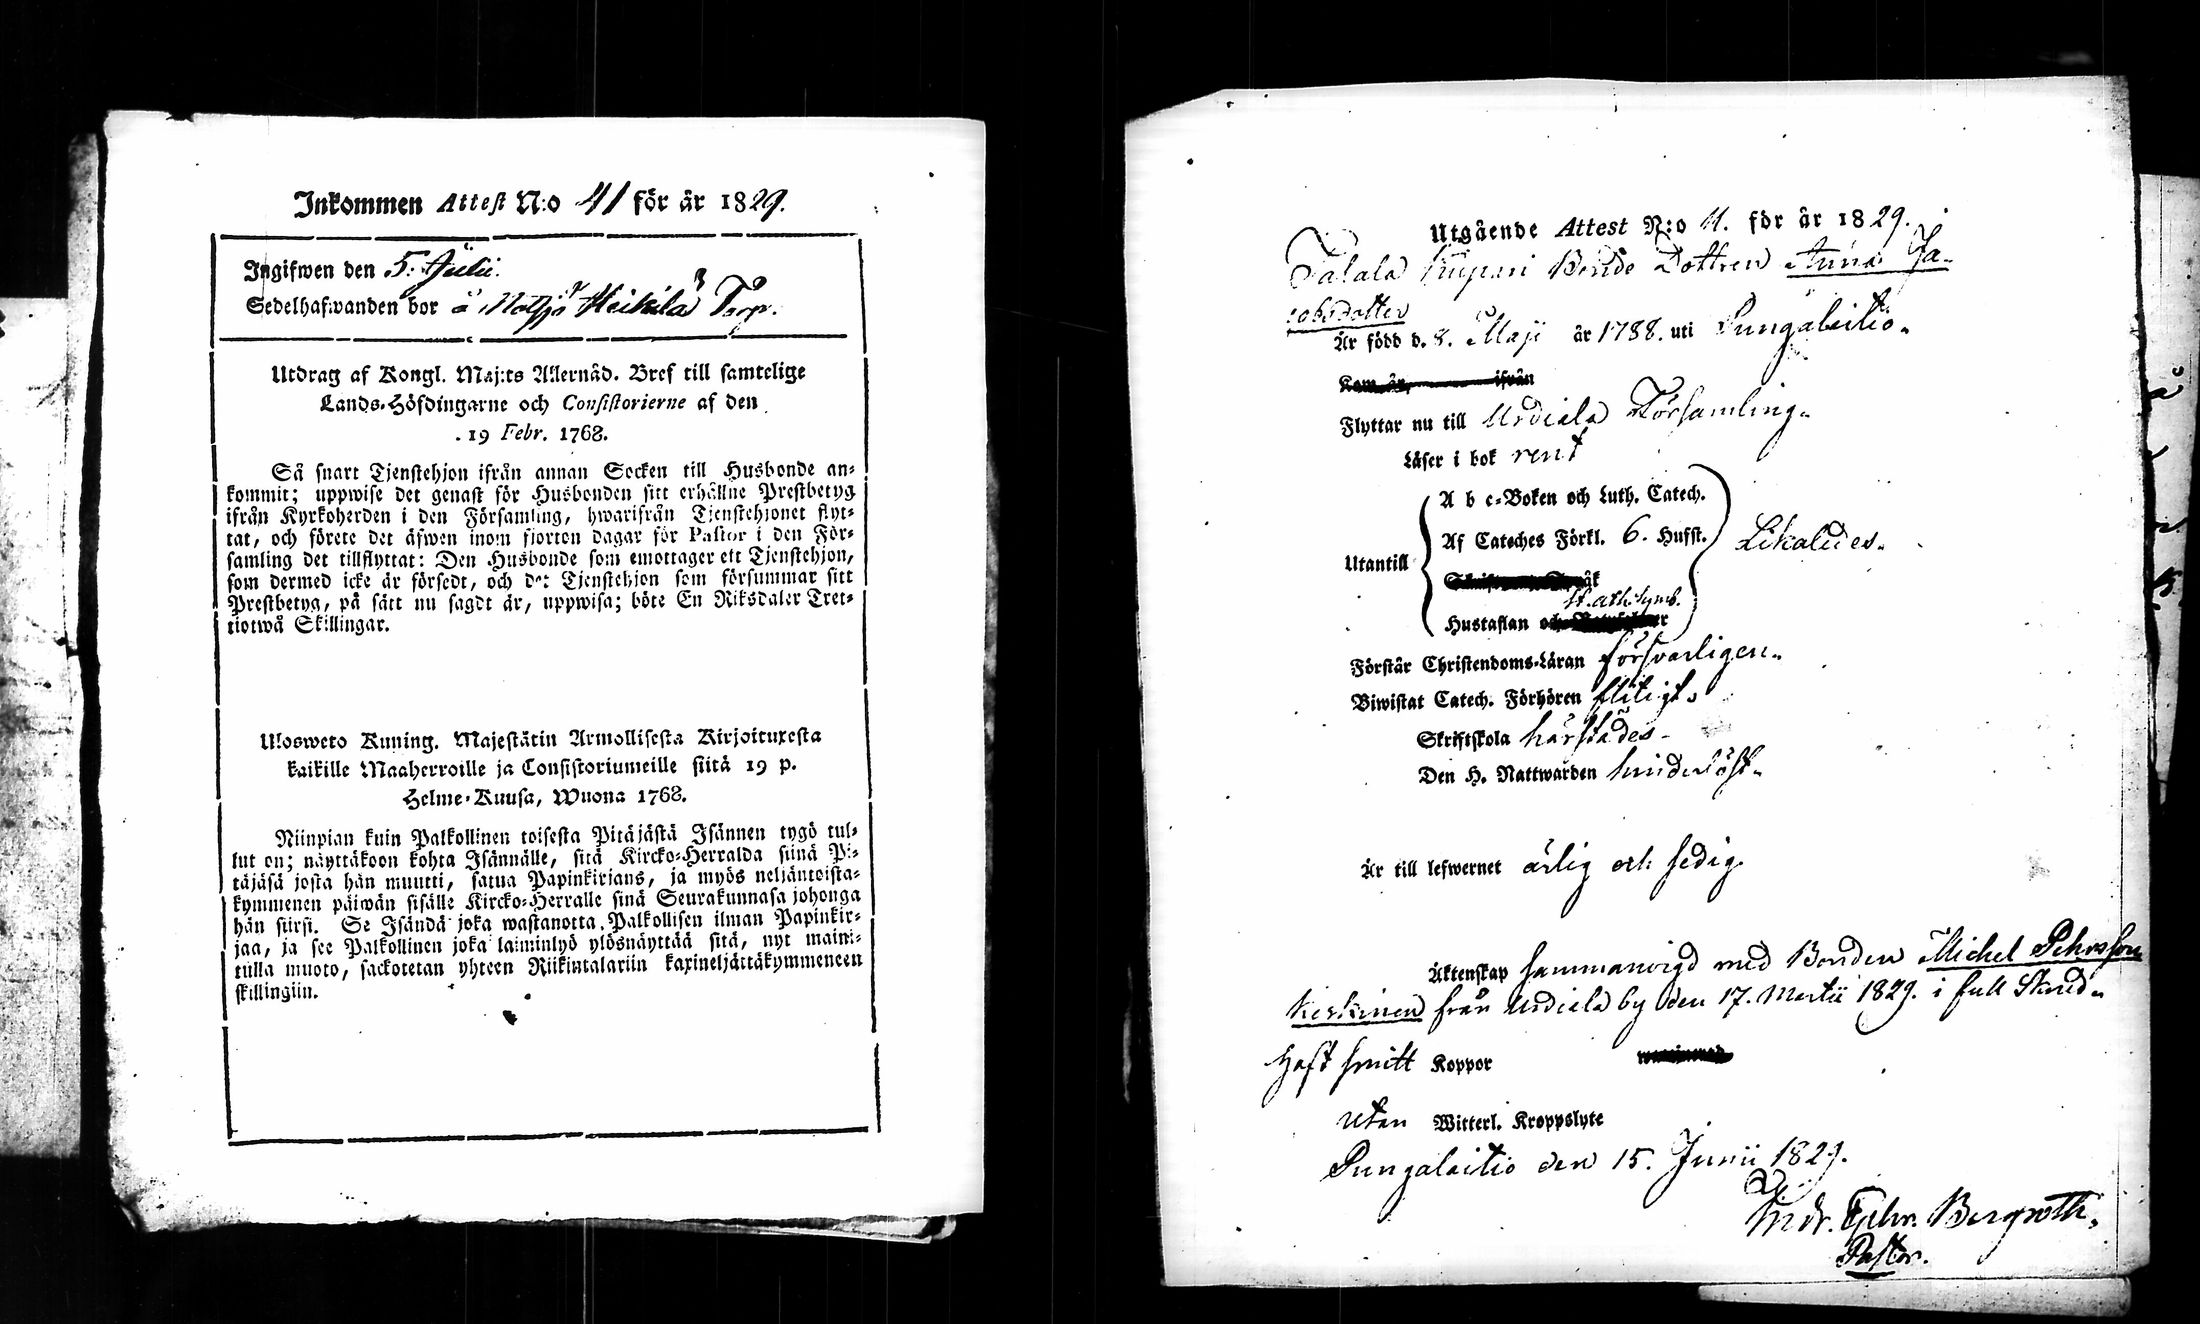 Inkommen Attest N:o 41 för år 1829.
Ingifwen den 5. Julii.
Sedelhafwanden bor å Heikilä Torp.
Utdrag af Kongl. Maj:ts Allernåd. Bref till samtelige
Lands-Höfdingarne och Consistorierne af den
19 Febr. 1768.
Så snart Tjenstehjon ifrån annan Socken till Husbonde an-
kommit; uppwise det genast för Husbonden sitt erhållne Prestbetyg
ifrån Kyrkoherden i den Församling, hwarifrån Tjenstehjonet flyt-
tat, och förete det äfwen inom fjorton dagar för Pastor i den För-
samling det tillflyttat: Den Husbonde som emottager ett Tjenstehjon,
som dermed icke är försedt, och det Tjenstehjon som försummar sitt
Prestbetyg, på sätt nu sagdt är, uppwisa; böte En Riksdaler Tret-
tiotwå Skillingar.
Ulosweto Kuning. Majestätin Armollisesta Kirjoituxesta
kaikille Maaherroille ja Consistoriumeille siitä 19 p.
Helme-Kuusa, Wuona 1768.
Niinpian kuin Palkollinen toisesta Pitäjästä Isännen tygö tul-
lut on; näyttäkoon kohta Isännälle, sitä Kircko-Herralda siinä Pi-
täjäsä josta hän muutti, satua Papinkirjans, ja myös neljäntoista-
kymmenen päiwän sisälle Kircko-Herralle siinä Seurakunnasa johonga
hän siirsi. Se Isändä joka wastanotta Palkollisen ilman Papinkir-
jaa, ja see Palkollinen joka laiminlyö ylösnäyttää sitä, nyt maini-
tulla muoto, sackotetan yhteen Riikintalariin kaxineljättäkymmeneen
skillingiin.
Utgående Attest N:o 11. för år 1829.
Talala Kuppari Bonde Dottren Anna Ja-
cobsdotter
Är född d. 8. Maji år 1788. uti Pungalaitio.
Kom år, ifrån
Flyttar nu till Urdiala Församling.
Läser i bok rent
Utantill
A b c-Boken och Luth. Catech.
Af Cateches Förkl. 6. Hufst.
Likaledes.
st. ath. symb.
Hustaflan och
Förstår Christendoms-Läran försvarligen.
Biwistat Catech. Förhören flitigt.
Skriftskola härstädes.
Den H. Nattwarden hinderlöst.
Är till lefwernet ärlig och sedig.
Äktenskap sammanvigd med Bonden Michel Pehrsson
Keskinen från Urdiala by den 17. Martii 1829. i full Stånd.
Haft smitt Koppor
utan Witterl. Kroppslyte
Pungalaitio den 15. Junii 1829.
Bergroth.
Pastor.